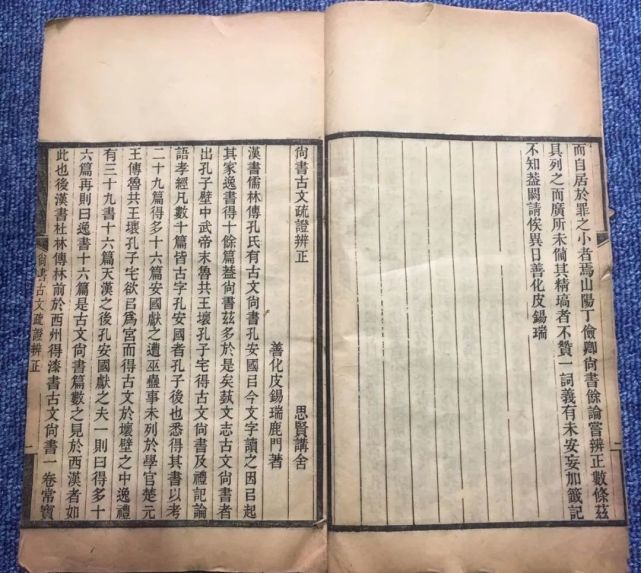 二
而自居於罪之小者焉山陽丁儉卿尙書餘論嘗辨正數條茲
具列之而廣所未僃其精塙者不贊一詞義有未安妄加籤記
不知葢闕請俟異日善化皮錫瑞
尙書古文疏證辨正
思賢講舍
善化皮錫瑞鹿門著
漢書儒林傳孔氏有古文尙書孔安國㠯今文字讀之因㠯起
其家逸書得十餘篇葢尙書茲多於是矣蓺文志古文尙書者
出孔子壁中武帝末魯共王壞孔子宅得古文尙書及禮記論
語孝經凡數十篇皆古字孔安國者孔子後也悉得其書以考
二十九篇得多十六篇安國獻之遭巫蠱事未列於學官楚元
王傳魯共王壞孔子宅欲㠯爲宮而得古文於壞壁之中逸禮
有三十九書十六篇天漢之後孔安國獻之夫一則曰得多十
六篇再則曰逸書十六篇是古文尙書篇數之見於西漢者如
此也後漢書杜林傳林前於西州得漆書古文尙書一卷常寶
尙書古文疏證辨正
一